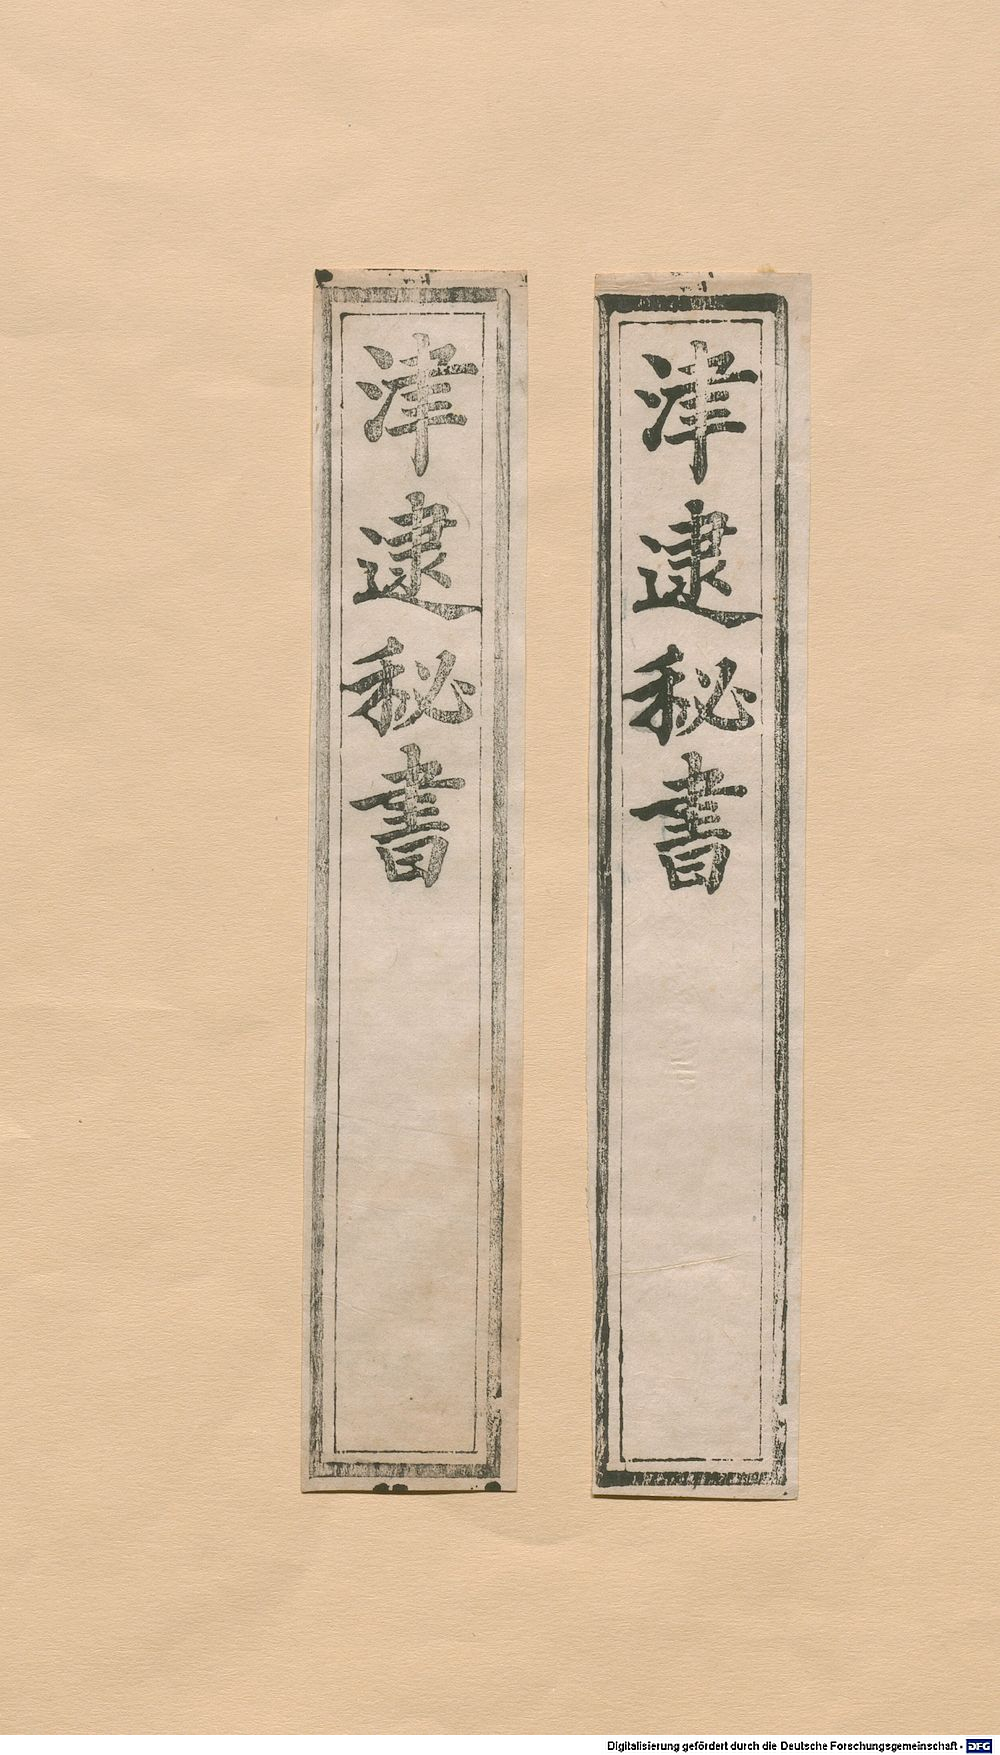 津逮秘書
津逮秘書
Digitalisierung gefördert durch die Deutsche Forschungsgemeinschaft - DFG